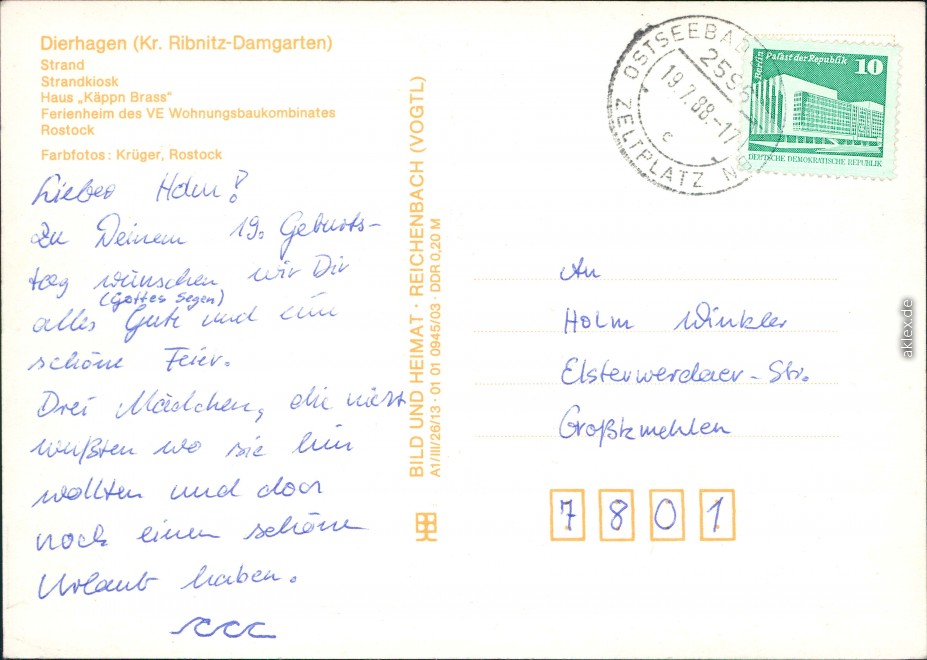 Dierhagen (Kr. Ribnitz-Damgarten)
Strand
Strandkiosk
Haus „Käppn Brass"
Ferienheim des VE Wohnungsbaukombinates
Rostock
Farbfotos: Krüger, Rostock
Lieber Holm!
Zu Deinem 19. Geburts-
tag wünschen wir Dir
(Gottes Segen)
alles Gute und eine
schöne Feier.
Drei Mädchen, die nicht
wußten wo sie hin
wollten und doch
noch einen schönen
Urlaub haben.
BILD UND HEIMAT · REICHENBACH (VOGTL)
A1/III/26/13 · 01 01 0945/03 · DDR 0,20 M
OSTSEEBAD
2595
19.7.88.-17
c
ZELTPLATZ
Berlin Palast der Republik
10
DEUTSCHE DEMOKRATISCHE REPUBLIK
An
Holm Winkler
Elsterwerdaer-Str.
Großkmehlen
7801
aklex.de